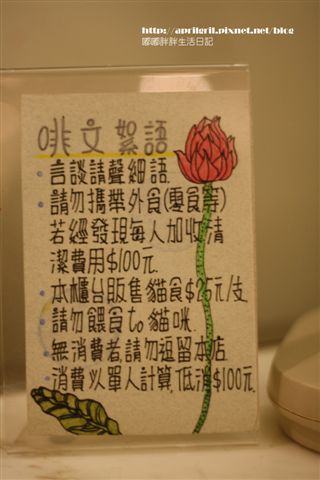 http://aprilgril.pixnet.net/blog
嘟嘟胖胖生活日記
啡文絮語
言談請聲細語
請勿攜帶外食(零食等)
若經發現每人加收清
潔費用$100元.
本櫃台販售貓食$25元/支
請勿餵食to貓咪.
無消費者,請勿逗留本店
消費以單人計算,低消$100元.